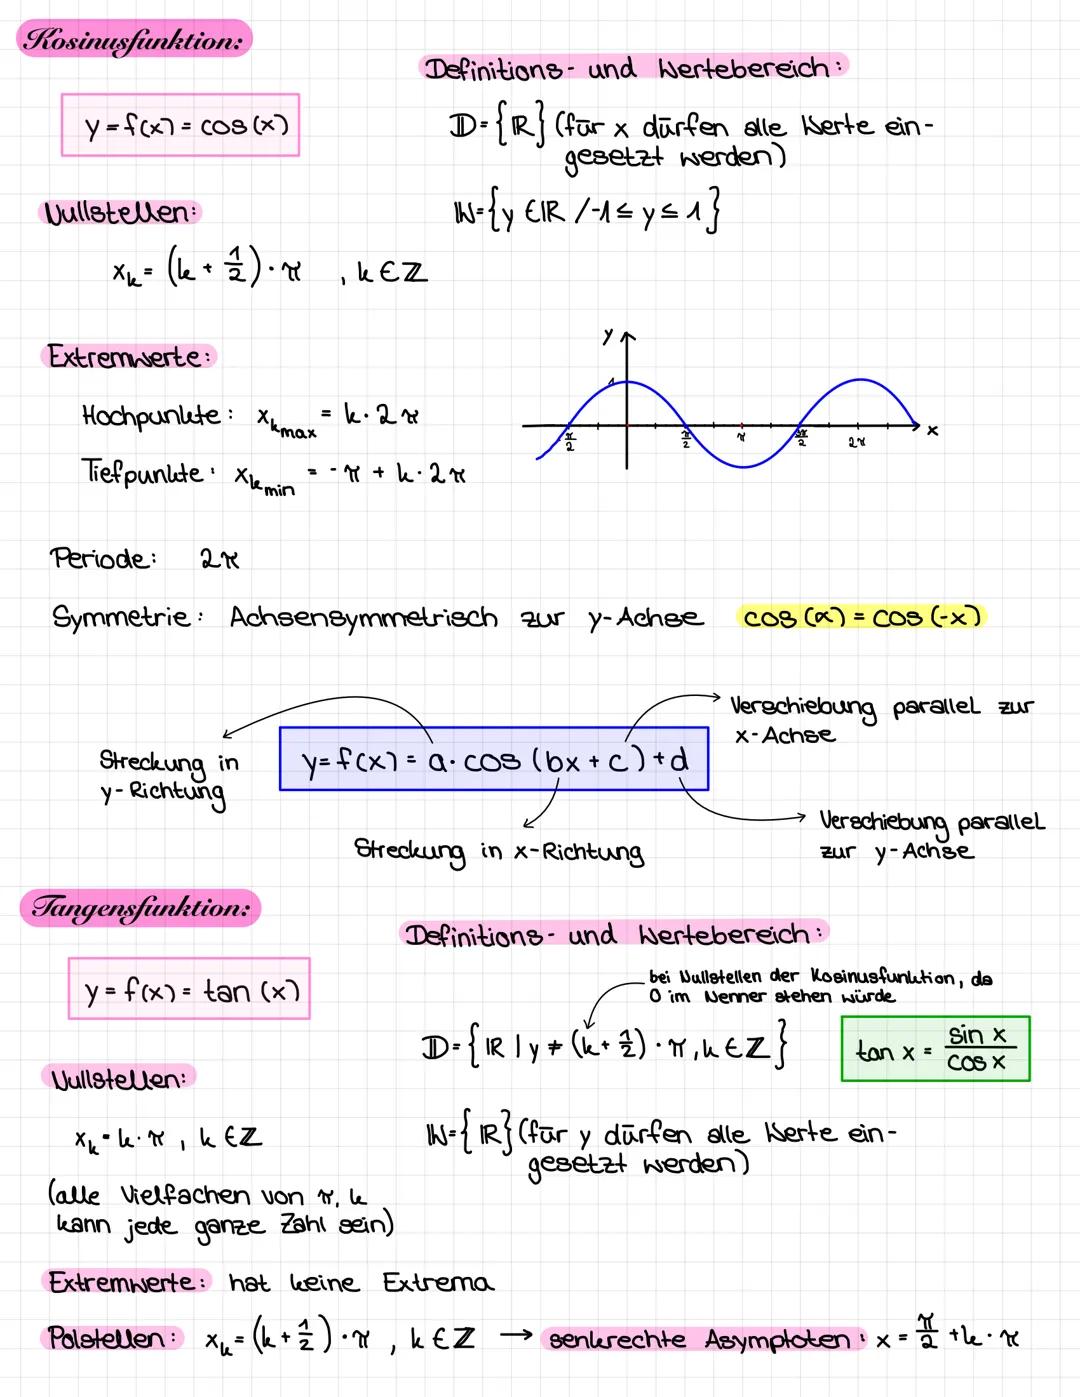 Kosinusfunktion:
y = f(x) = cos (x)
Definitions- und Wertebereich:
D = {ℝ} (für x dürfen alle Werte ein-
gesetzt werden)
W = {y ∈ ℝ / -1 ≤ y ≤ 1}
Nullstellen:
x_k = (k + 1/2) · π , k ∈ ℤ
Extremwerte:
Hochpunkte: x_kmax = k · 2π
Tiefpunkte: x_kmin = -π + k · 2π
y
1
π/2 π/2 π 3π/2 2π x
Periode: 2π
Symmetrie: Achsensymmetrisch zur y-Achse cos (x) = cos (-x)
Verschiebung parallel zur
x-Achse
Streckung in
y-Richtung
y = f(x) = a · cos (bx + c) + d
Streckung in x-Richtung
Verschiebung parallel
zur y-Achse
Tangensfunktion:
y = f(x) = tan (x)
Definitions- und Wertebereich:
bei Nullstellen der Kosinusfunktion, da
0 im Nenner stehen würde
D = {ℝ | y ≠ (k + 1/2) · π, k ∈ ℤ}
tan x = sin x / cos x
Nullstellen:
x_k = k · π , k ∈ ℤ
(alle Vielfachen von π, k
kann jede ganze Zahl sein)
W = {ℝ} (für y dürfen alle Werte ein-
gesetzt werden)
Extremwerte: hat keine Extrema
Polstellen: x_k = (k + 1/2) · π , k ∈ ℤ → senkrechte Asymptoten: x = π/2 + k · π